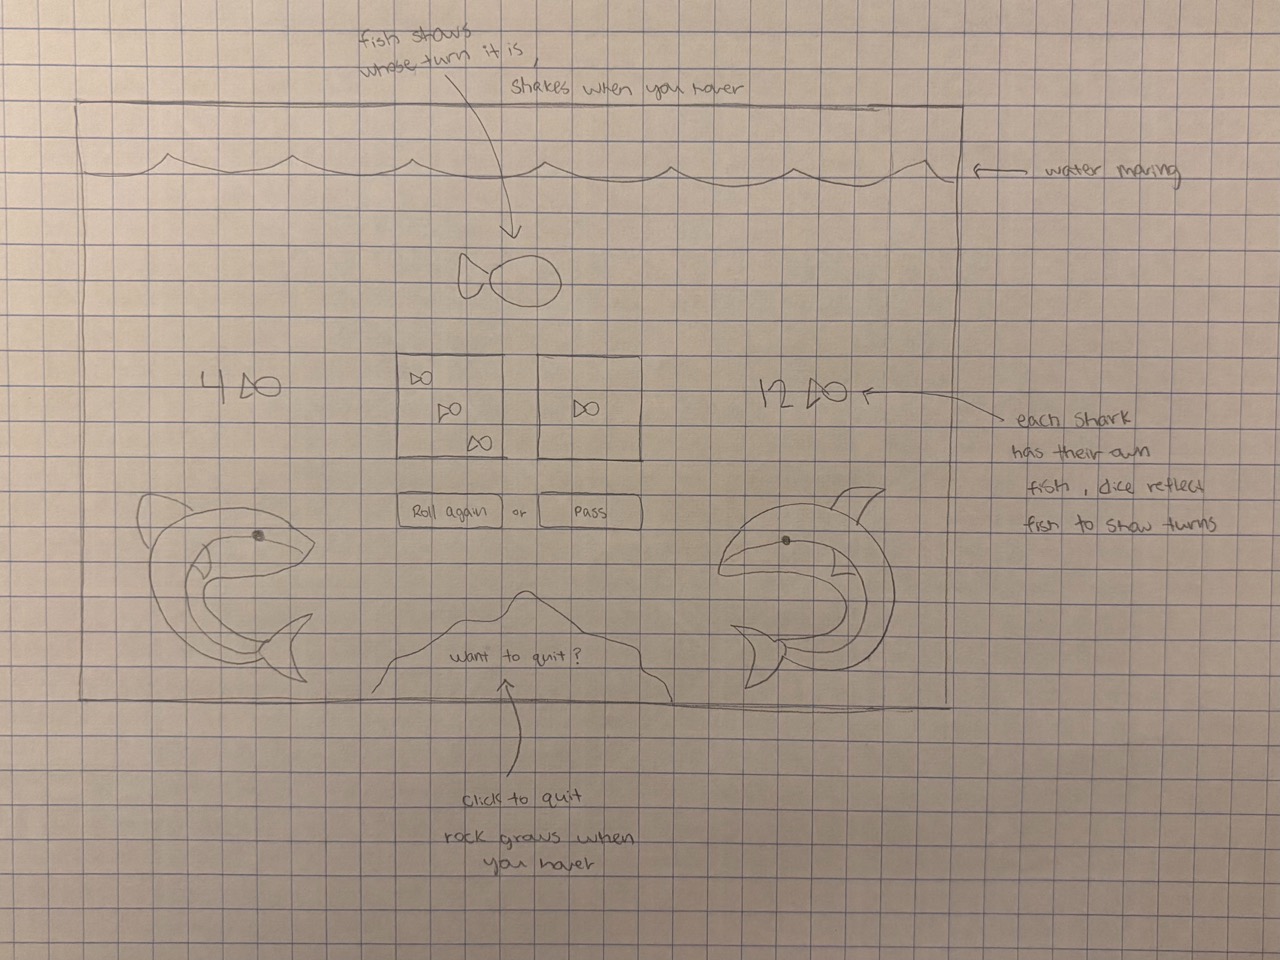 fish shows
whose turn it is,
shakes when you hover
water moving
4
12
each shark
has their own
fish, dice reflect
fish to show turns
Roll again or Pass
want to quit?
click to quit
rock grows when
you hover